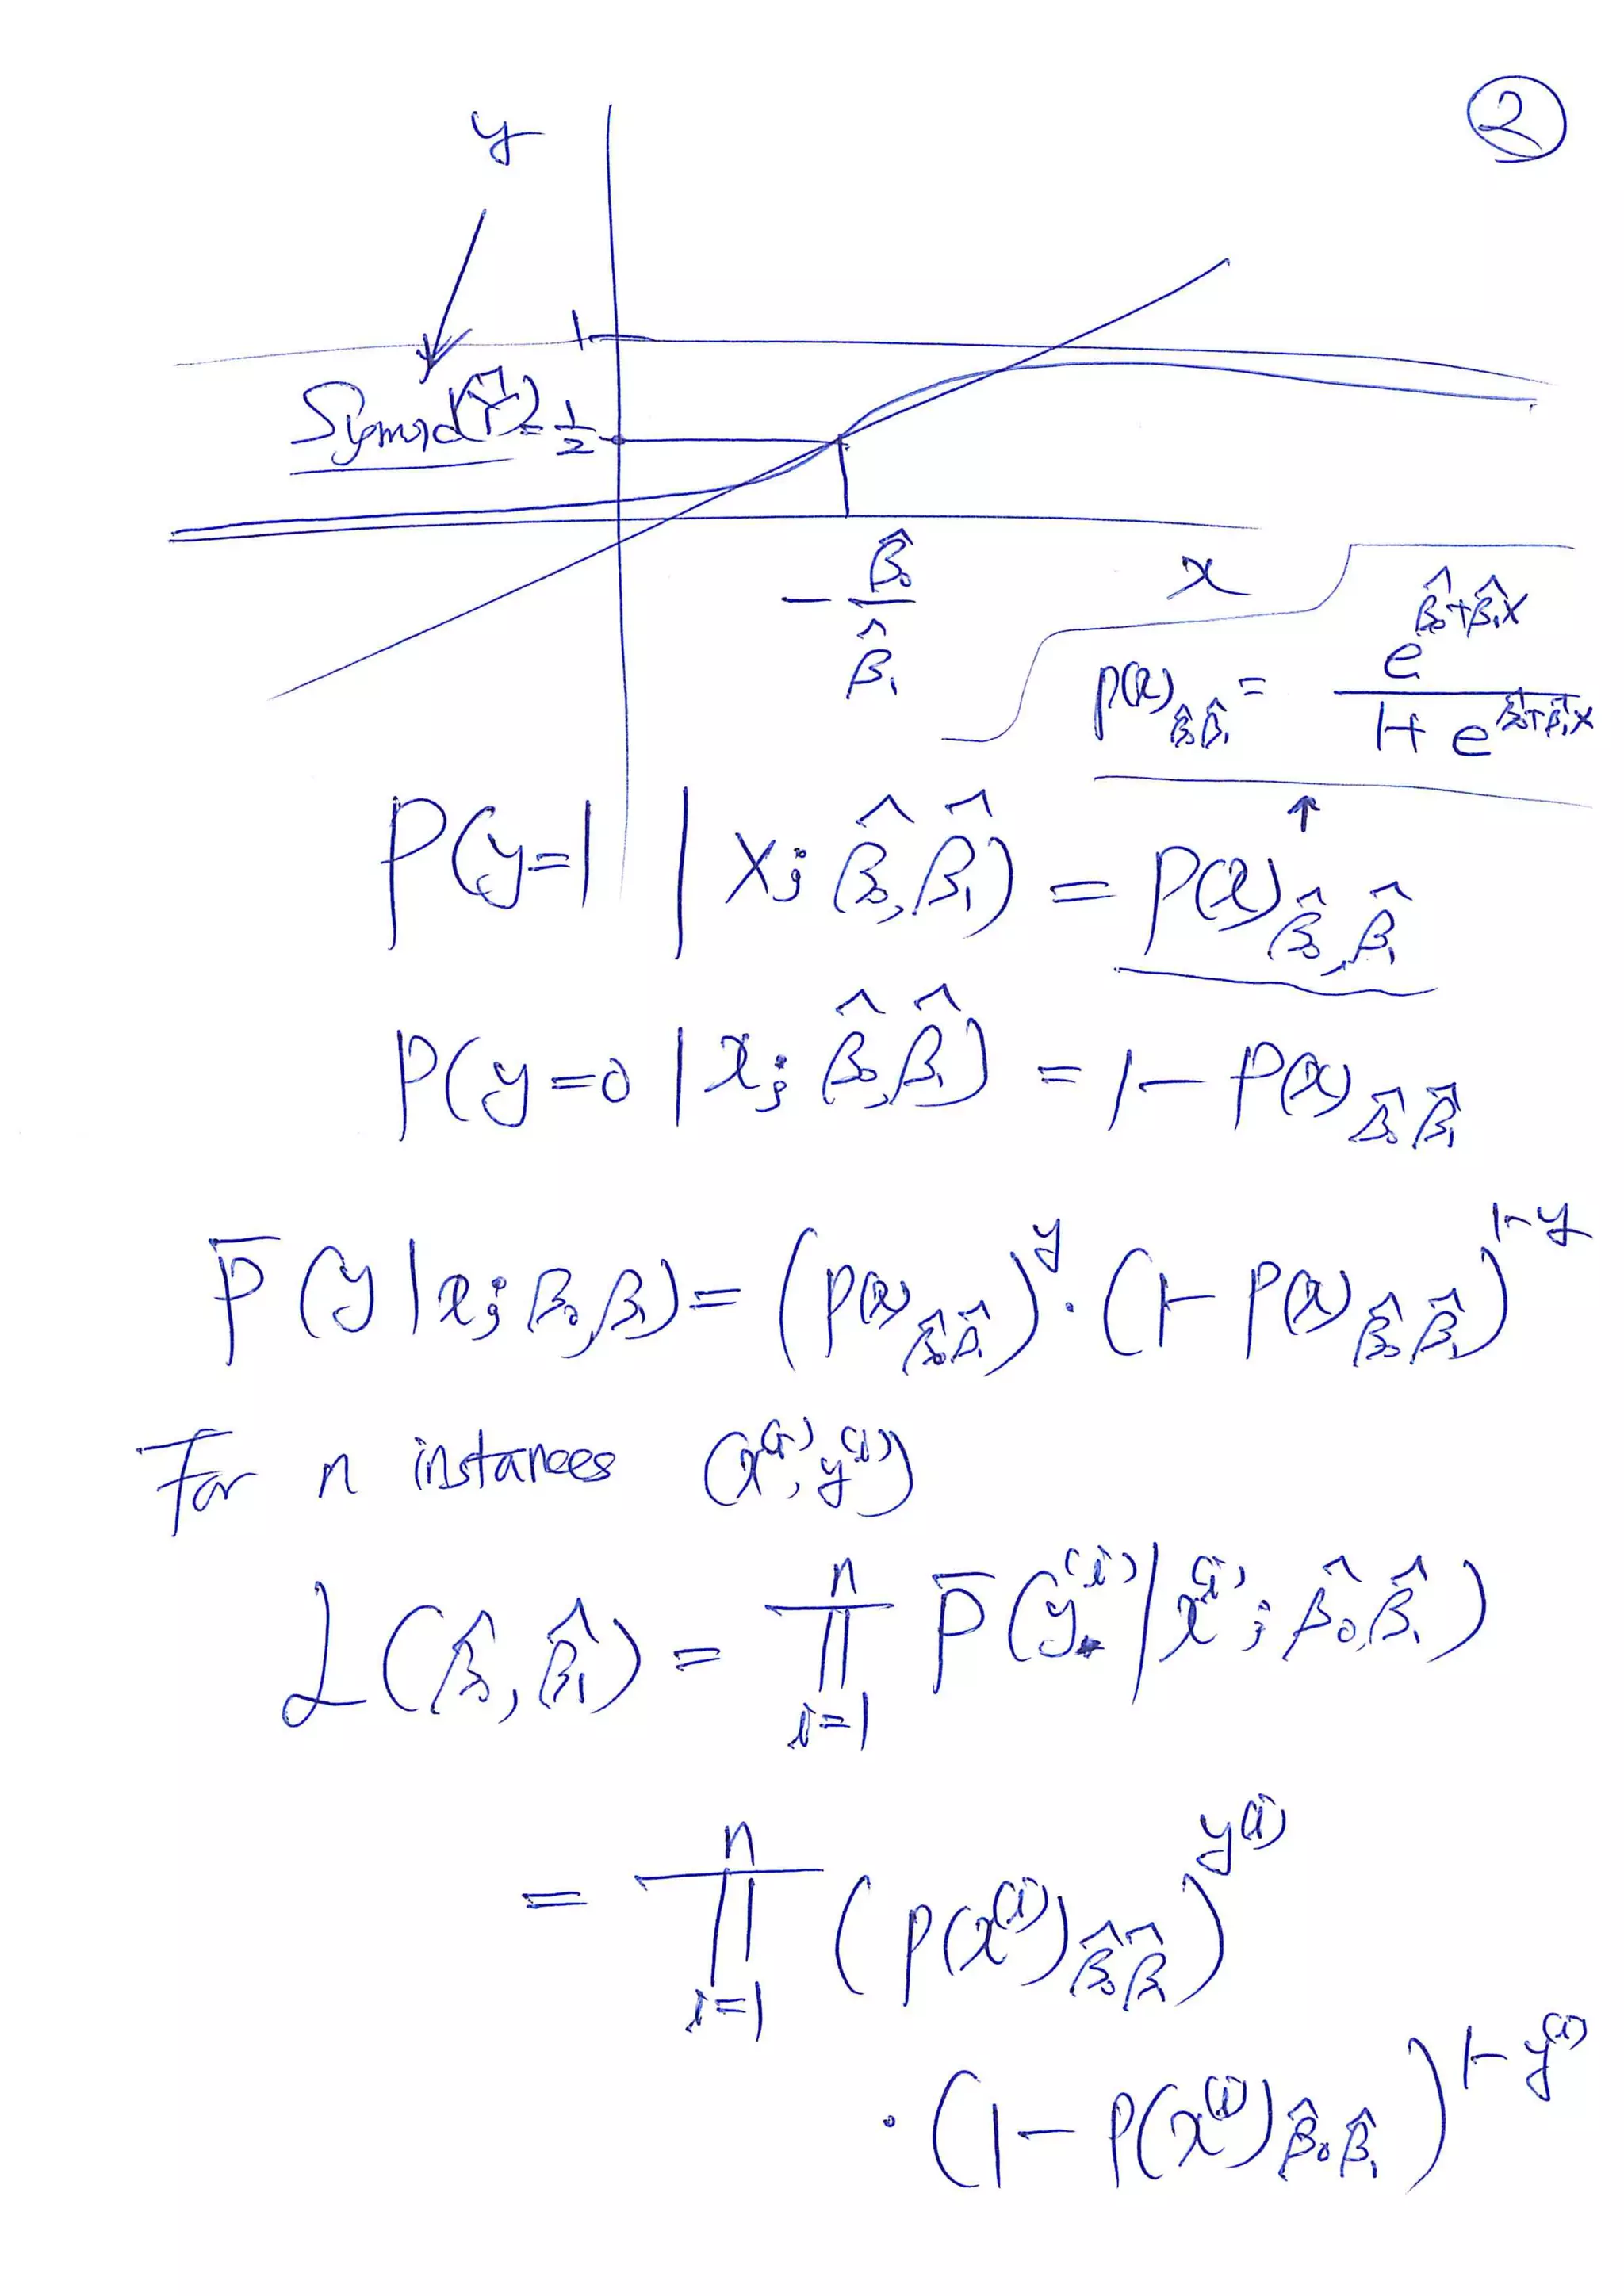 ②
y
1
Sigmoid(Ŷ) = 1/2
- β̂₀/β̂₁
x
p(x)_β̂₀β̂₁ = e^(β̂₀+β̂₁x) / (1+e^(β̂₀+β̂₁x))
↑
P(y=1 | x; β̂₀, β̂₁) = P(x)_β̂₀,β̂₁
P(y=0 | x; β̂₀, β̂₁) = 1 - P(x)_β̂₀β̂₁
P(y | x; β₀, β₁) = (P(x)_β̂₀β̂₁)^y · (1 - P(x)_β̂₀β̂₁)^(1-y)
For n instances (x⁽ⁱ⁾, y⁽ⁱ⁾)
L(β̂₀, β̂₁) = ∏_{i=1}^{n} P(y⁽ⁱ⁾ | x⁽ⁱ⁾; β̂₀, β̂₁)
= ∏_{i=1}^{n} (P(x⁽ⁱ⁾)_β̂₀β̂₁)^(y⁽ⁱ⁾)
· (1 - P(x⁽ⁱ⁾)_β̂₀β̂₁)^(1-y⁽ⁱ⁾)